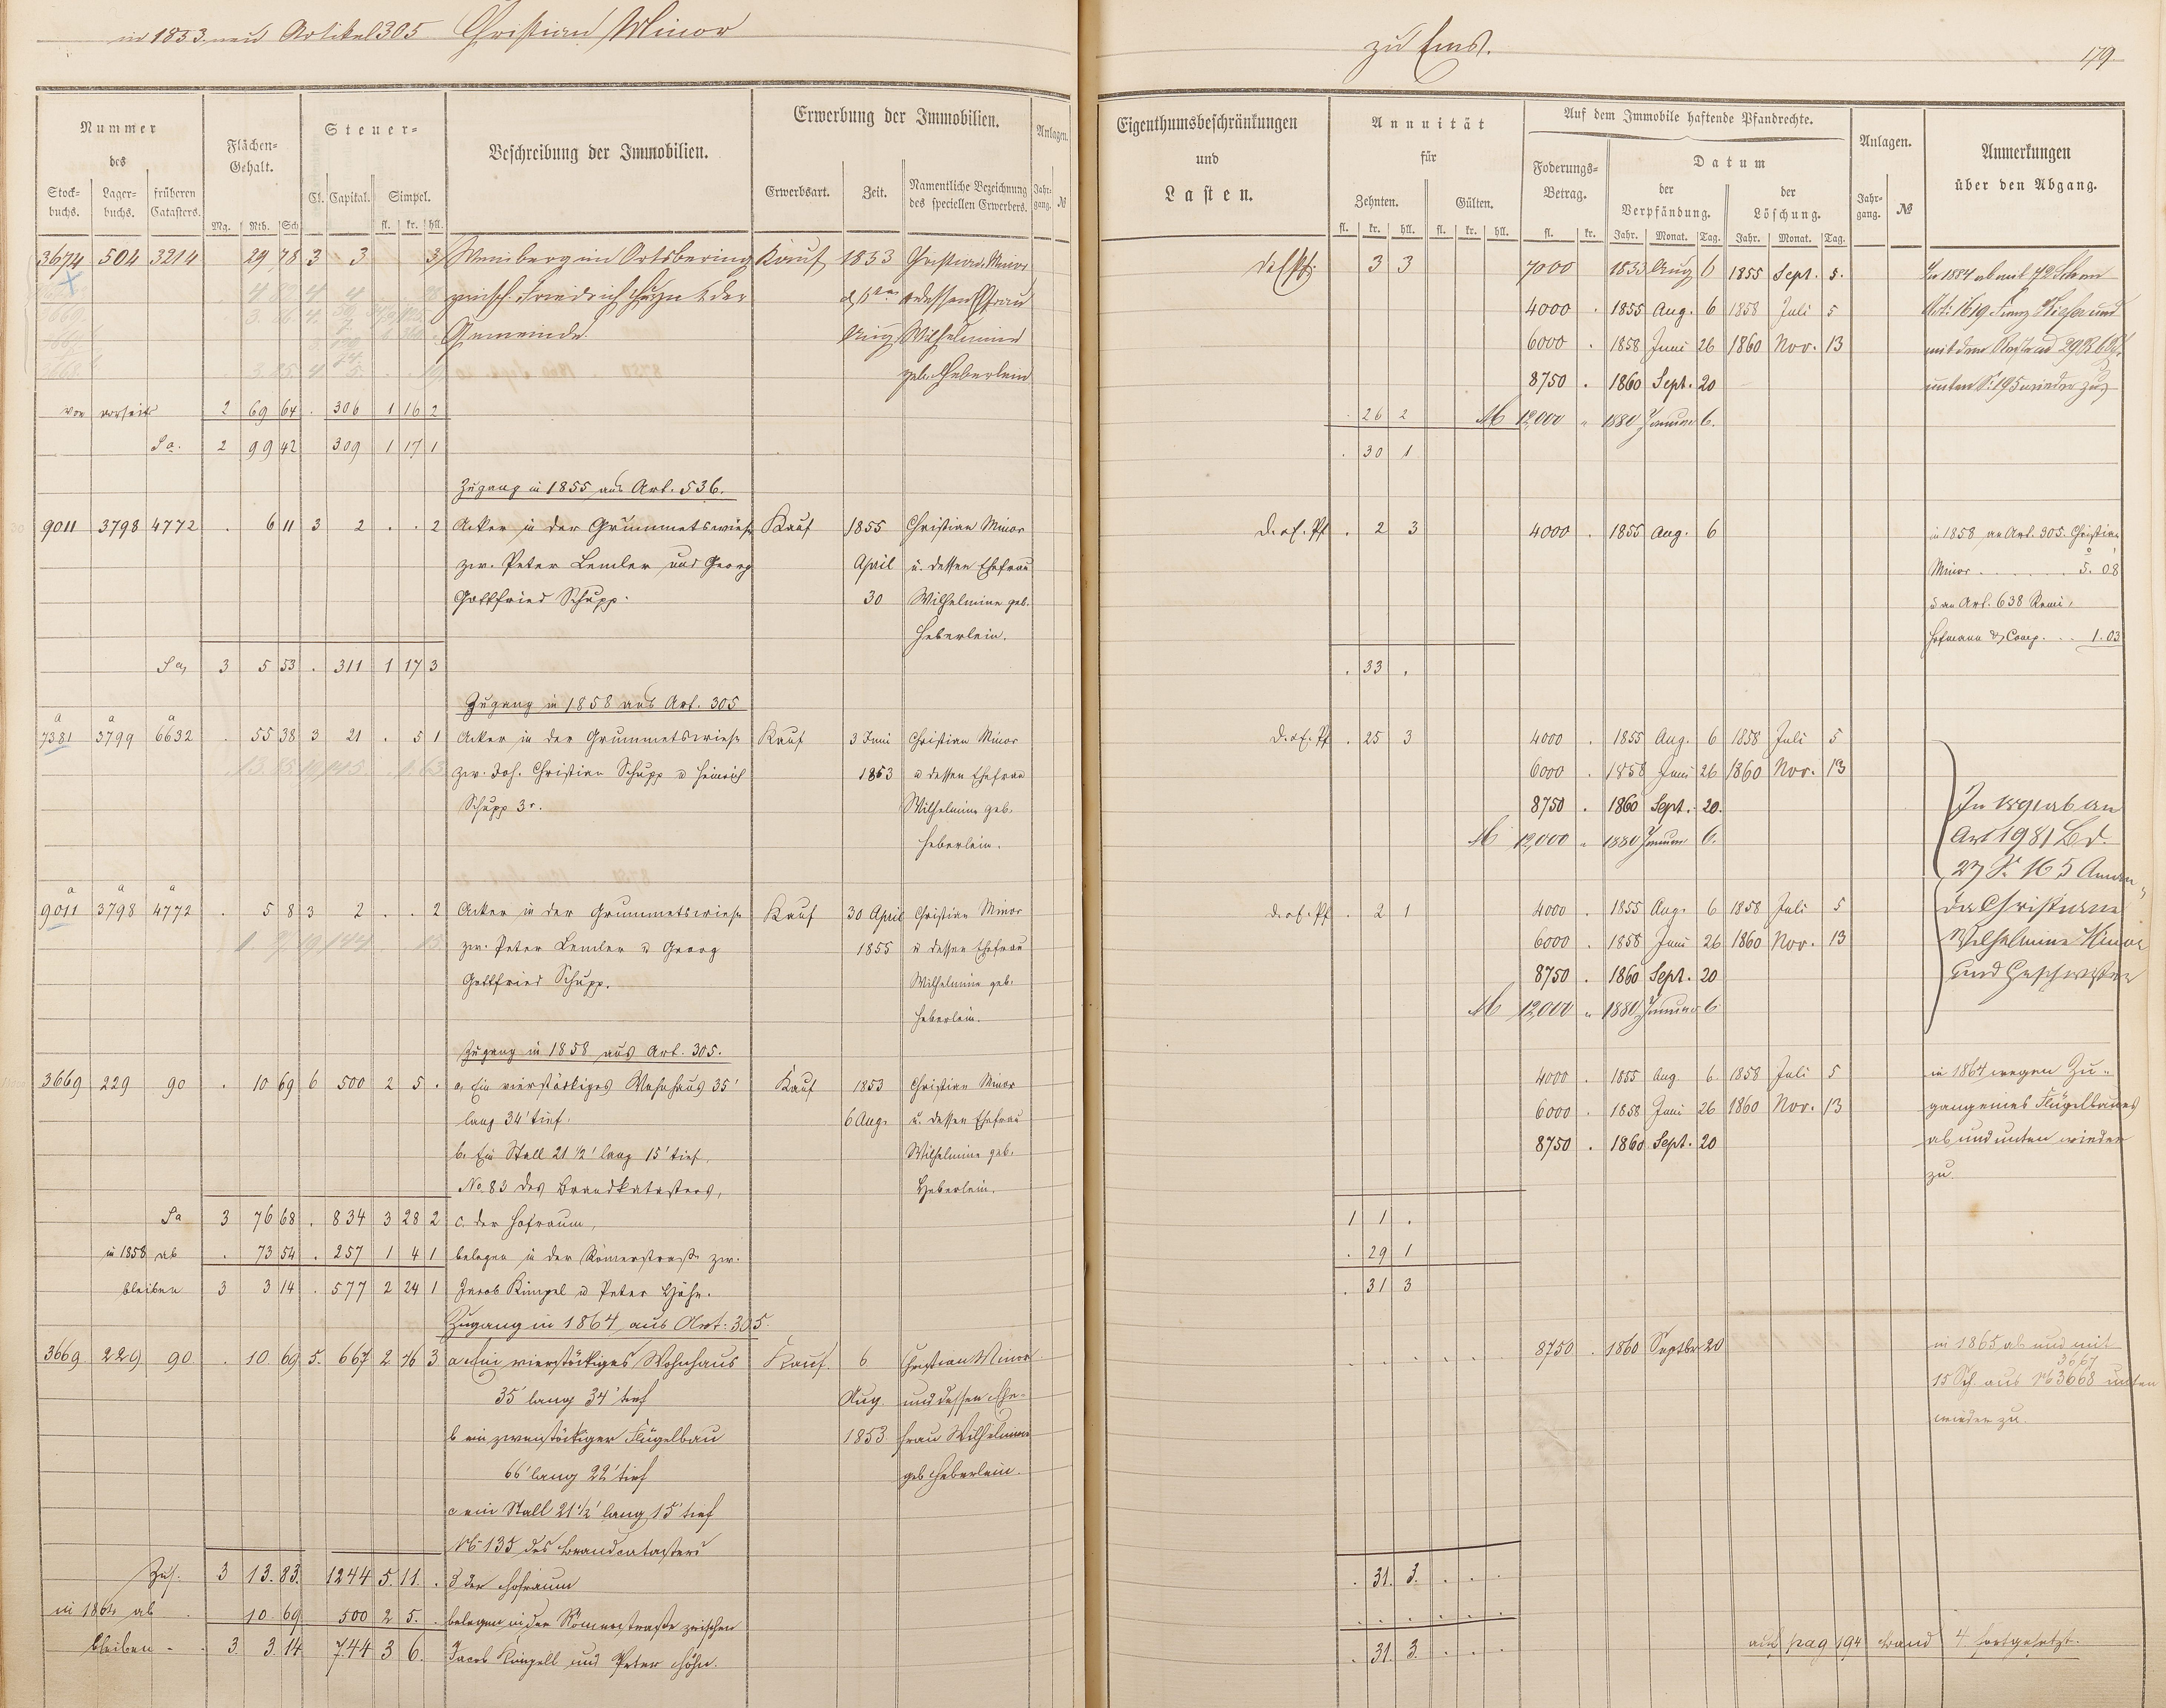 in 1853 neu Artikel 305 Christian Minor
zu Ems.
179
Nummer des
Flächen-Gehalt.
Steuer-
Beschreibung der Immobilien.
Erwerbung der Immobilien.
Anlagen.
Stock-buchs. Lager-buchs. früheren Catasters.
Mg. Rth. Sch. Cl. Capital. Simpel. fl. kr. hll.
Erwerbsart. Zeit. Namentliche Bezeichnung des speciellen Erwerbers. Jahr-gang. №
3674 504 3214 29 78 3 3 3 Weinberg im Ortsbering Kauf 1853 Christian Minor
zwisch. Friedrich & der & dessen Ehfrau
Gemeinde. Aug Wilhelmine
geb. Heberlein
von vorseits 2 69 64 . 306 1 16 2
Sa. 2 99 42 309 1 17 1
Zugang in 1855 aus Art. 536.
9011 3798 4772 . 6 11 3 2 . . 2 Acker in der Grummetswiese Kauf 1855 Christian Minor
zw. Peter Lemler und Georg April u. dessen Ehefrau
Gottfried Schupp. 30 Wilhelmine geb.
Heberlein.
Sa. 3 5 53 . 311 1 17 3
Zugang in 1858 aus Art. 305
a a a
7381 3799 6632 . 55 38 3 21 . 5 1 Acker in der Grummetswiese Kauf 3 Juni Christian Minor
zw. Joh. Christian Schupp u Heinrich 1853 u dessen Ehefrau
Schupp 3r. Wilhelmine geb.
Heberlein.
a a a
9011 3798 4772 . 5 8 3 2 . . 2 Acker in der Grummetswiese Kauf 30 April Christian Minor
zw. Peter Lemler u Georg 1855 u dessen Ehefrau
Gottfried Schupp. Wilhelmine geb.
Heberlein.
Zugang in 1858 aus Art. 305.
3669 229 90 . 10 69 6 500 2 5 . a. Ein vierstöckiges Wohnhaus 35' Kauf 1853 Christian Minor
lang 34' tief. 6 Aug. u. dessen Ehefrau
b. Ein Stall 21 1/2' lang 15' tief. Wilhelmine geb.
No. 83 des Brandkatasters, Heberlein.
Sa 3 76 68 . 834 3 28 2 c. der Hofraum,
in 1858 ab . 73 54 . 257 1 4 1 belegen in der Römerstraße zw.
bleiben 3 3 14 . 577 2 24 1 Jacob Kimpel u Peter Höhn.
Zugang in 1864 aus Art: 305.
3669 229 90 . 10 69 5. 667 2 46 3 a Ein vierstöckiges Wohnhaus Kauf. 6 Christian Minor
35' lang 34' tief Aug. und dessen Ehe-
b ein zweistöckiger Flügelbau 1853 frau Wilhelmine
66' lang 22' tief geb Heberlein.
c ein Stall 21 1/2' lang 15' tief
№ 135 des Brandcatasters
Zus. 3 13. 83. 1244 5. 11. . d der Hofraum
in 1864 ab . 10. 69 500 2 5. . belegen in der Römerstraße zwischen
bleiben - 3. 3. 14 744 3 6. Jacob Kimpell und Peter Höhn.
Eigenthumsbeschränkungen und Lasten.
Annuität für
Auf dem Immobile haftende Pfandrechte.
Anlagen.
Anmerkungen über den Abgang.
Zehnten. Gülten. Foderungs-Betrag. Datum der Verpfändung. der Löschung. Jahr-gang. №
fl. kr. hll. fl. kr. hll. fl. kr. Jahr. Monat. Tag. Jahr. Monat. Tag.
3 3 7000 1853 Aug 6 1855 Sept. 5.
4000 . 1855 Aug. 6 1858 Juli 5
6000 . 1858 Juni 26 1860 Nov. 13
8750 . 1860 Sept. 20
. 26 2 M 12,000 " 1880 Januar 6.
. 30 1
D. . 2 3 4000 . 1855 Aug. 6 in 1858 an Art. 305. Christian
Minor . . . . . . 5. 08
u an Art. 638 Remi,
Hofmann & Comp. . . 1. 03
. 33 .
. 25 3 4000 . 1855 Aug. 6 1858 Juli 5
6000 . 1858 Juni 26 1860 Nov. 13
8750 . 1860 Sept. 20.
M 12,000 " 1880 Januar 6.
In 1891 ab an
Art 1981 Bd.
27 S. 165
Christiane
Wilhelmine Minor
und Geschwister
. 2 1 4000 . 1855 Aug. 6 1858 Juli 5
6000 . 1858 Juni 26 1860 Nov. 13
8750 . 1860 Sept. 20
M 12,000 " 1880 Januar 6
4000 . 1855 Aug. 6 1858 Juli 5 in 1864 wegen Zu-
6000 . 1858 Juni 26 1860 Nov. 13 gang eines Flügelbaues
8750 . 1860 Sept. 20 ab und unten wieder
zu.
1 1 .
. 29 1
. 31 3
8750 . 1860 Septbr 20 in 1865 ab und mit
3667
15 Sch. aus № 3668 unten
wieder zu.
. 31. 3. . . .
. 31. 3. . . .
auf pag 194 Band 4 fortgesetzt.